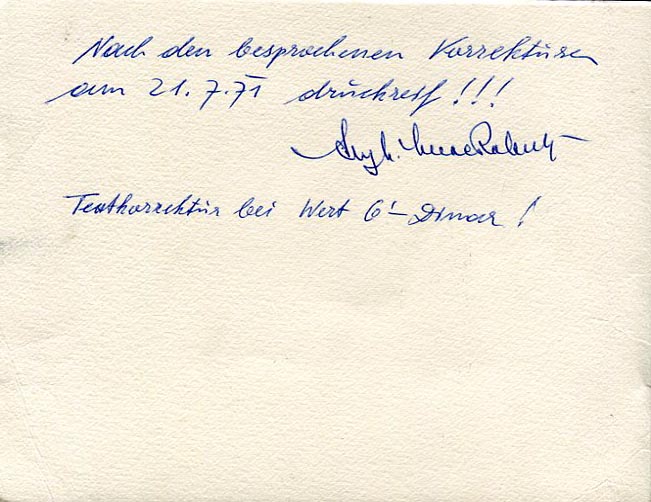 Nach den besprochenen Korrekturen
am 21.7.71 druckreif!!!
Textkorrektur bei Wert 6'- Dinar!